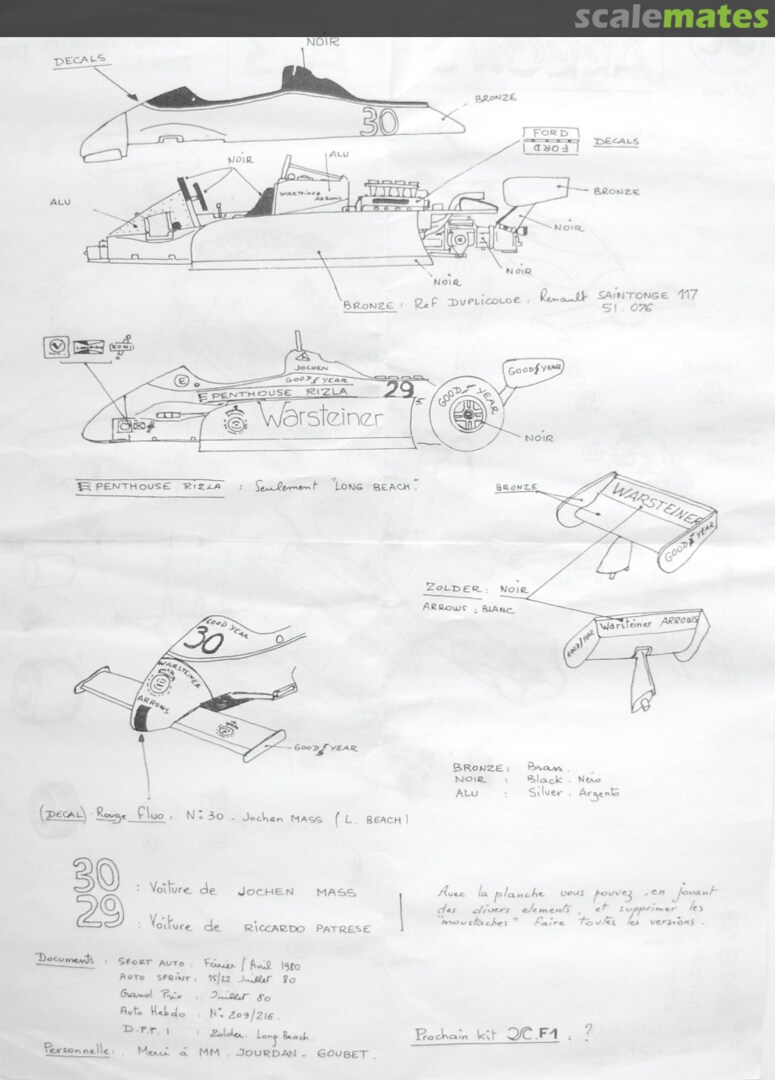 scalemates
NOIR
DECALS
BRONZE
30
FORD
FORD
DECALS
NOIR
ALU
WARSTEINER
ARROWS
BRONZE
ALU
NOIR
NOIR
NOIR
BRONZE : Ref DUPLICOLOR : Renault SAINTONGE 117
51.076
KONI
JOCHEN
GOODYEAR
E
E PENTHOUSE RIZLA
29
GOODYEAR
GOOD YEAR
Warsteiner
NOIR
E PENTHOUSE RIZLA : Seulement "LONG BEACH".
BRONZE
WARSTEINER
GOODYEAR
ZOLDER : NOIR
ARROWS : BLANC
Warsteiner ARROWS
GOODYEAR
GOOD YEAR
30
WARSTEINER
ARROWS
GOODYEAR
BRONZE : Brass.
NOIR : Black . Nero
ALU : Silver . Argento
(DECAL) Rouge Fluo . N:30 . Jochen MASS (L. BEACH)
30 : Voiture de JOCHEN MASS
29 : Voiture de RICCARDO PATRESE
Avec la planche vous pouvez, en jouant
des divers elements, et supprimer les
"moustaches" faire toutes les versions.
Documents : SPORT AUTO : Février / Avril 1980
AUTO SPRINT : 15/22 Juillet 80
Grand Prix : Juillet 80
Auto Hebdo : N: 209/216.
D.P.P.I : Zolder. Long Beach.
Personnelle : Merci à MM. JOURDAN - GOUBET.
Prochain kit JC.F1 : ?